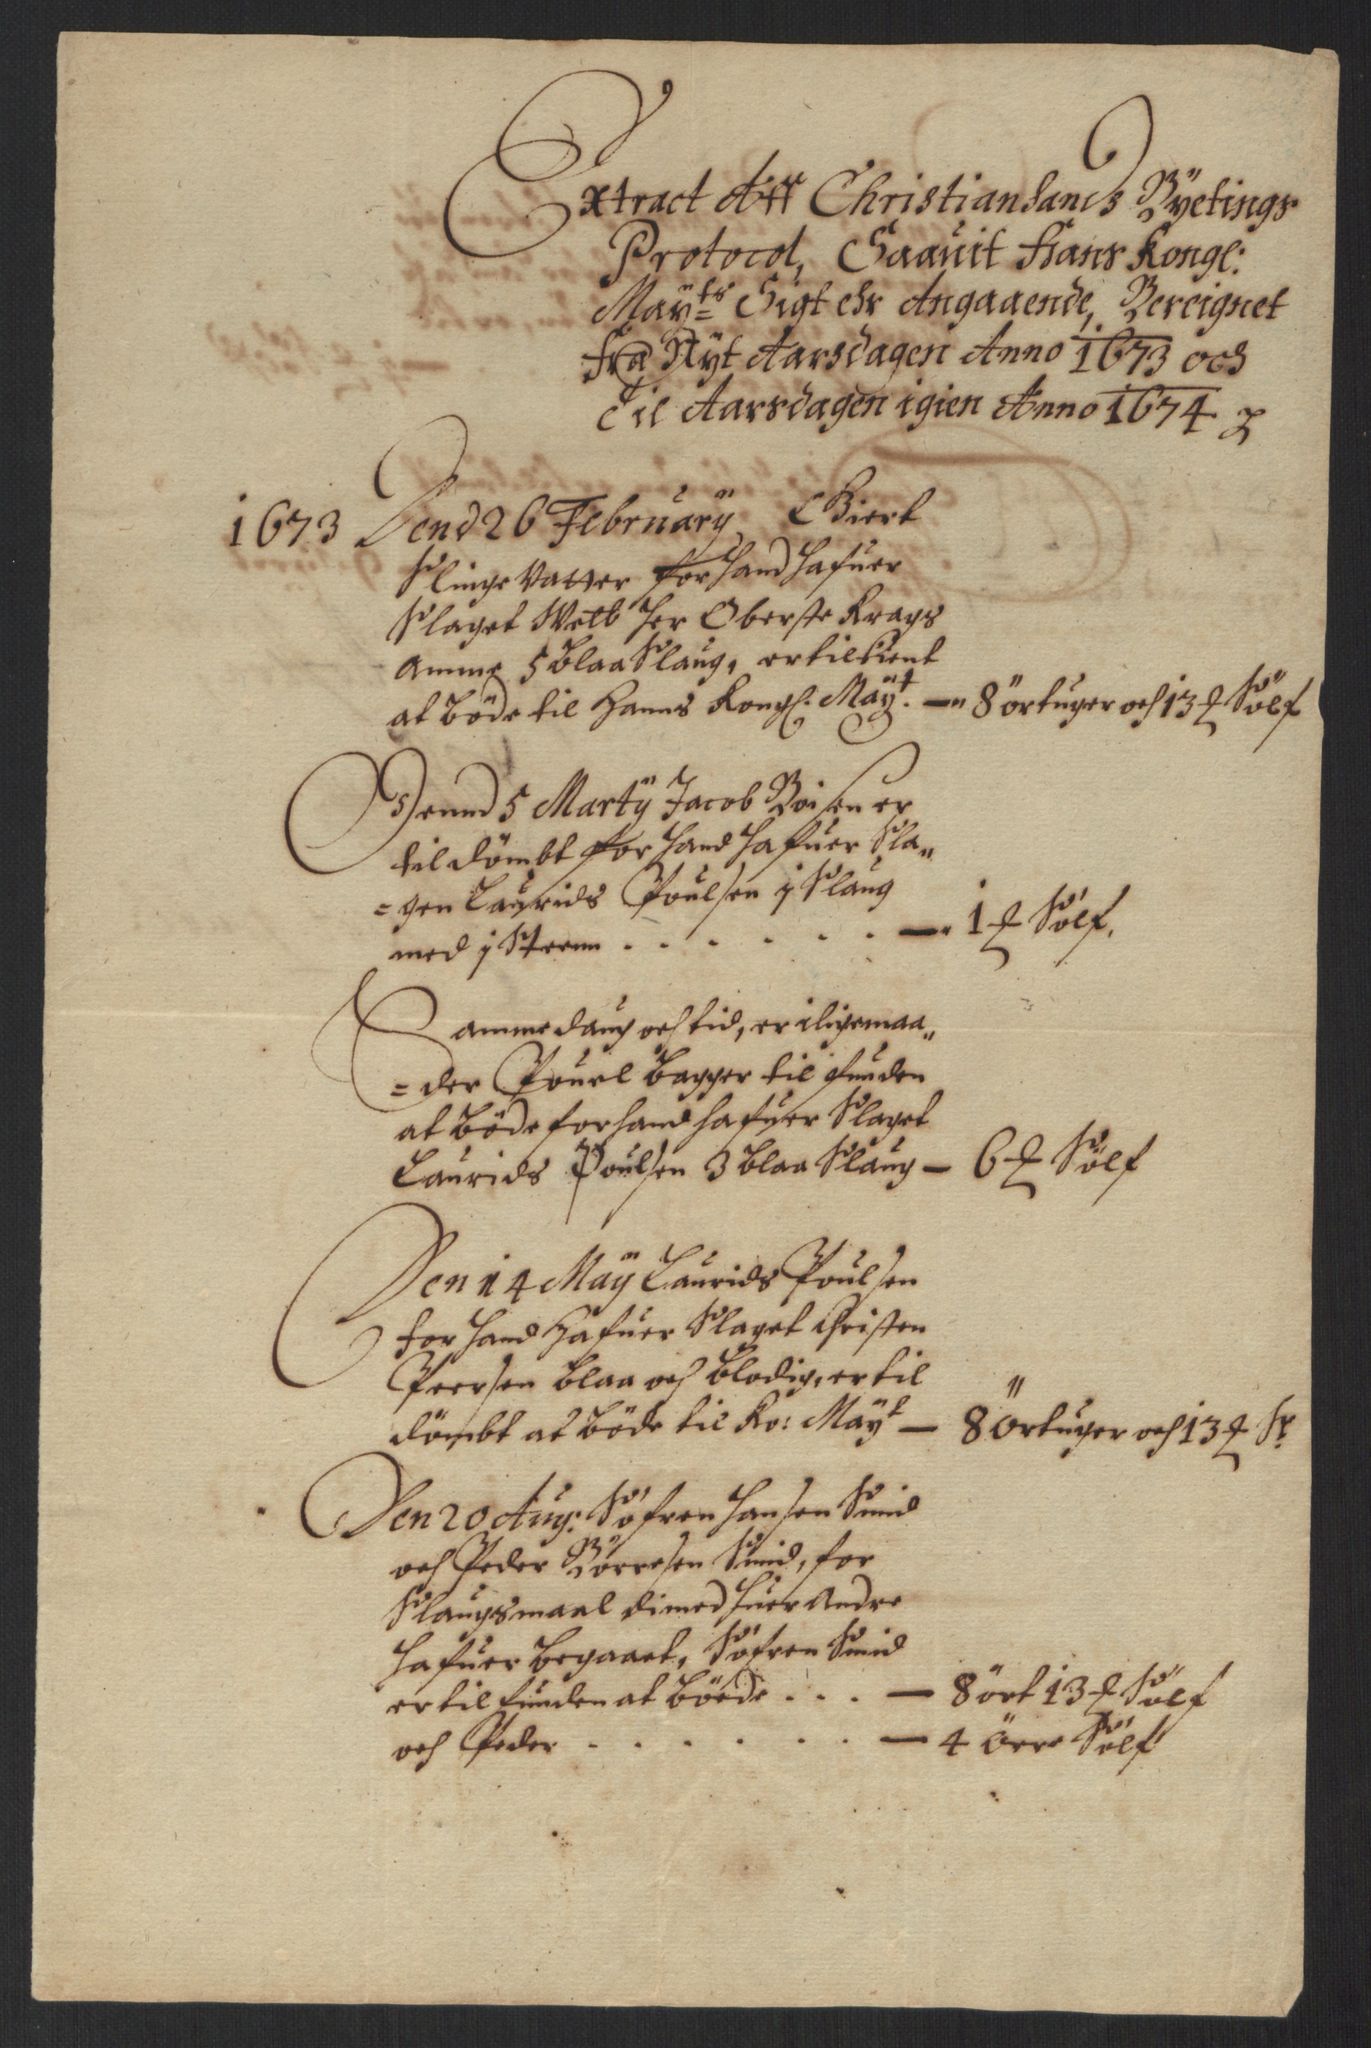 Extract Aff Christiansands Byetings
Protocol, Saauit Hans Kongl:
Mayts Sigt ehr Angaaende, Bereignet
fra Nÿt Aarsdagen Anno 1673 och
Til Aarsdagen igien Anno 1674
1673 Dend 26 Februarÿ Giert
Slinge Vatter for hand hafuer
Slaget Welb Her Oberste Krags
Amme 5 blaa Slaug, er tilkient
at böde til Hanns Kongl. Maÿt. — 8 örtuger och 13 ℔ Sölf
Dennd 5 Martÿ Jacob Boisen er
til dömbt for hand hafuer Sla„
=gen Laurids Poulsen j Slaug
med j Steenn . . . . . . — 1 ℔ Sölf.
Samme daug och tid, er iligemaa„
=der Pouel Bagger til funden
at böde for hand hafuer Slaget
Laurids Poulsen 3 blaa Slaug — 6 ℔ Sölf
Den 14 Maÿ Laurids Poulsen
for hand hafuer Slaget Christen
Peersen blaa och blodig, er til
dömbt at böde til Ko: Maÿt — 8 örtuger och 13 ℔ Sf.
Den 20 Aug: Söfren Hansen Smid
och Peder Börresen Smid, for
Slaugsmaal di med huer Andre
hafuer begaaet, Söfren Smid
er til funden at böede . . . — 8 ört 13 ℔ Sölf
och Peder . . . . . . — 4 örre Sölf